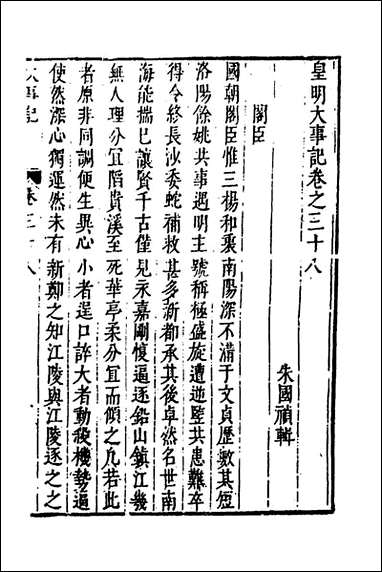 皇明大事記卷之三十八
朱國禎輯
閣臣
國朝閣臣惟三楊和衷南陽深不滿于文貞歷數其短
洛陽餘姚共事遇明主號稱極盛旋遭逆豎共患難卒
得令終長沙委蛇補救甚多新都承其後卓然名世南
海能揣己讓賢千古僅見永嘉剛愎逼逐鉛山鎮江幾
無人理分宜陷貴溪至死華亭柔分宜而傾之凡若此
者原非同調便生異心小者逞口詐大者動殺機勢逼
使然深心獨運然未有新鄭之知江陵與江陵逐之之
大事記 卷三十八